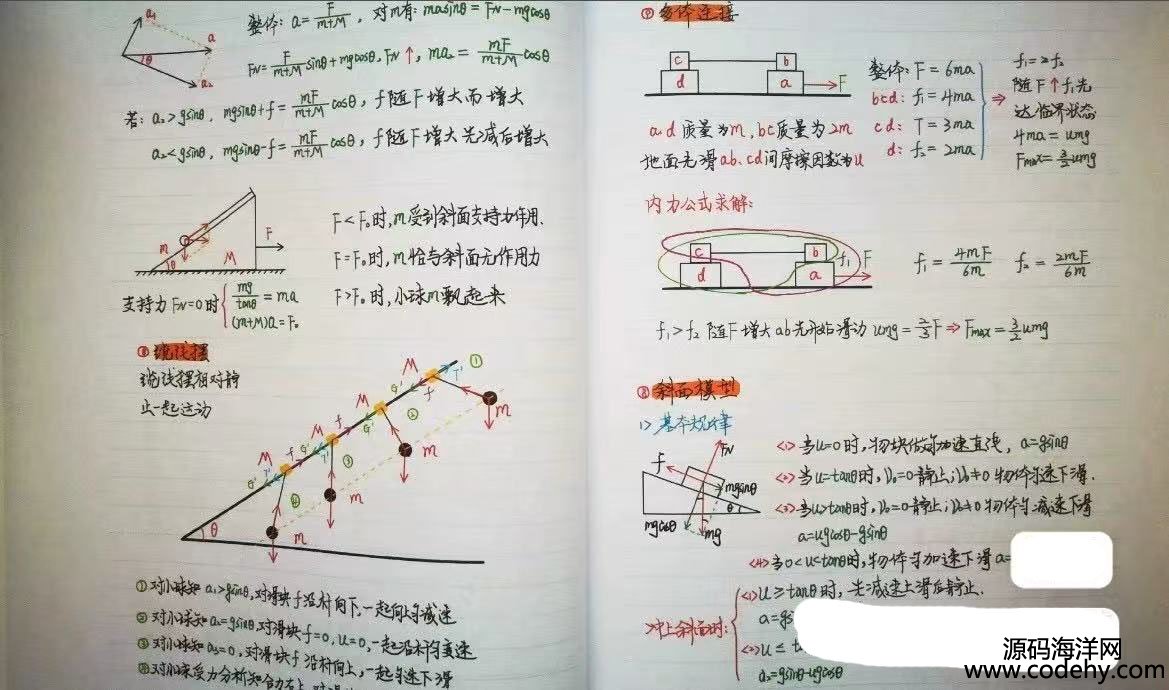 a₁
a
a₂
θ
整体: a=F/(m+M), 对m有: masinθ=F_N-mgcosθ
F_N=F/(m+M)sinθ+mgcosθ, F_N↑, ma₂=mF/(m+M)cosθ
若: a₂>gsinθ, mgsinθ+f=mF/(m+M)cosθ, f随F增大而增大
a₂<gsinθ, mgsinθ-f=mF/(m+M)cosθ, f随F增大先减后增大
m
M
θ
F
F<F₀时,m受到斜面支持力作用.
F=F₀时,m恰与斜面无作用力
F>F₀时,小球m飘起来
支持力F_N=0时{mg/tanθ=ma
(m+M)a=F₀
⑧缆线摆
缆线摆相对静
止一起运动
M M M M
m m m m
f f f
G' G' G' G'
T' T' T'
① ② ③ ④
θ
①对小球知a₁>gsinθ,对滑块f沿杆向下,一起向上匀减速
②对小球知a₂=gsinθ,对滑块f=0,u=0,一起沿杆匀变速
③对小球知a₃=0,对滑块f沿杆向上,一起匀速下滑
④对小球受力分析知合力
⑨多体连接
c b
d a F
整体: F=6ma
bcd: f₁=4ma
cd: T=3ma
d: f₂=2ma
⇒
f₁=2f₂
随F↑f₁先
达临界状态
4ma=umg
Fmax=3/2umg
a.d质量为m,bc质量为2m
地面光滑ab、cd间摩擦因数为u
内力公式求解:
c b f₁ F
d a
f₁=4mF/6m f₂=2mF/6m
f₁>f₂随F增大ab先开始滑动 umg=2/3F⇒Fmax=3/2umg
⑧斜面模型
1>基本规律
F_N
f
mgsinθ
θ
mgcosθ
mg
<1>当u=0时,物块做匀加速直线, a=gsinθ
<2>当u=tanθ时,V₀=0静止;V₀≠0物体匀速下滑.
<3>当u>tanθ时,V₀=0静止;V₀≠0物体匀减速下滑
a=ugcosθ-gsinθ
<4>当0<u<tanθ时,物体匀加速下滑a=
冲上斜面时:
<1>u≥tanθ时, 先减速上滑后静止.
a=gs
<2>u≤t
a₂=gsinθ-ugcosθ
源码海洋网
www.codehy.com